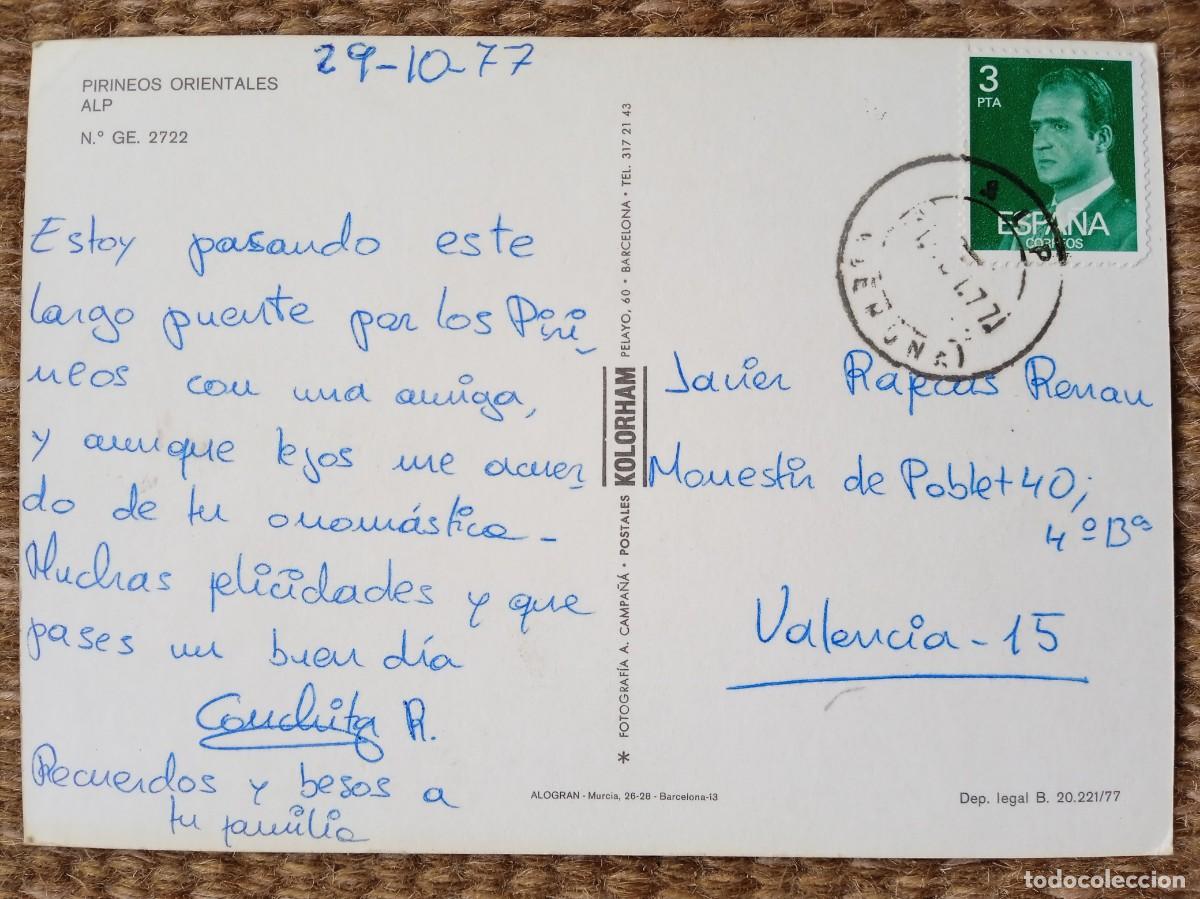 29-10-77
PIRINEOS ORIENTALES
ALP
N.º GE. 2722
Estoy pasando este
largo puente por los Piri
neos con una amiga,
y aunque lejos me acuer
do de tu onomástica -
Muchas felicidades y que
pases un buen día
Conchita R.
Recuerdos y besos a
tu familia
* FOTOGRAFÍA A. CAMPAÑÁ • POSTALES KOLORHAM PELAYO, 60 • BARCELONA • TEL. 317 21 43
ALOGRAN - Murcia, 26-28 - Barcelona-13
3
PTA
ESPAÑA
CORREOS
Javier
Monestir de Poblet 40,
4º B
Valencia - 15
Dep. legal B. 20.221/77
todocoleccion